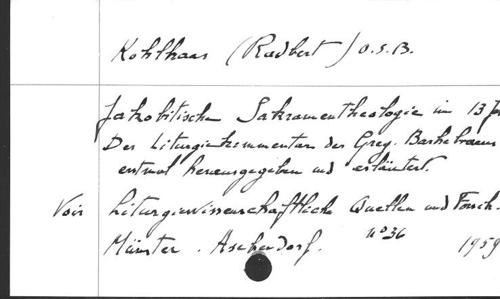 Kohlhaas (Radbert) O.S.B.
Jakobitische Sakramententheologie im 13 J
Der Liturgiekommentar des Greg. Barhebraeus
erstmal herausgegeben und erläutert.
Voir Liturgiewissenschaftliche Quellen und Forsch.
Münster. Aschendorf. nº 36 1959